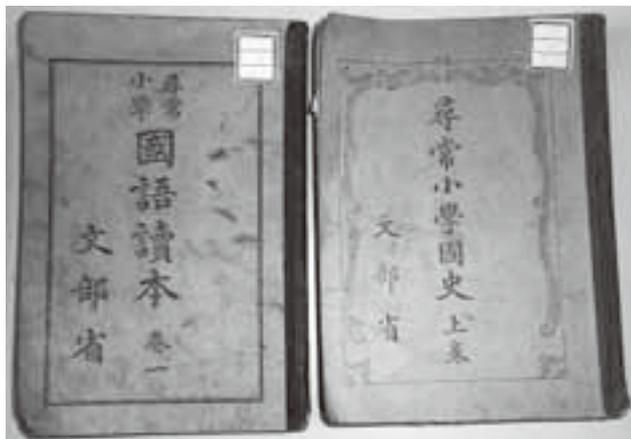 尋常
小學
國語讀本 卷一
文部省
尋常小學國史 上卷
文部省